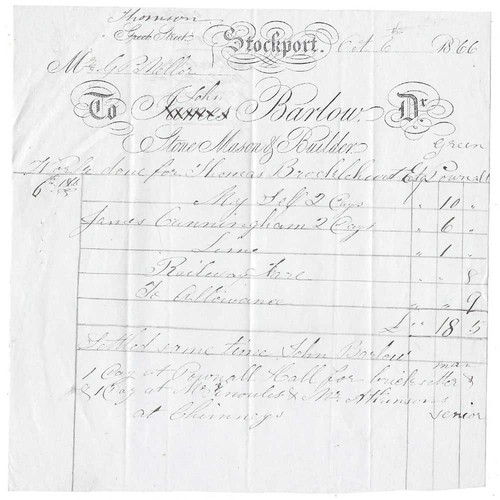 Thomson
Street
Stockport. Oct 6th 1866
Mr G B Mellor
John
To James Barlow. Dr.
Stone Mason & Builder
Green
Work done for Thomas Brocklehurst Esq Pownall
6th
My Self 2 Days " 10 "
James Cunningham 2 Days " 6 "
Lime " 1 "
Railway Fare " " 8
To Allowance " " 9
£ " 18 5
Settled same time John Barlow
man
1 Day at Pownall Hall for brick setter &
& 1 Day at Mr Knowles & Mr Atkinsons
at Chimneys senior